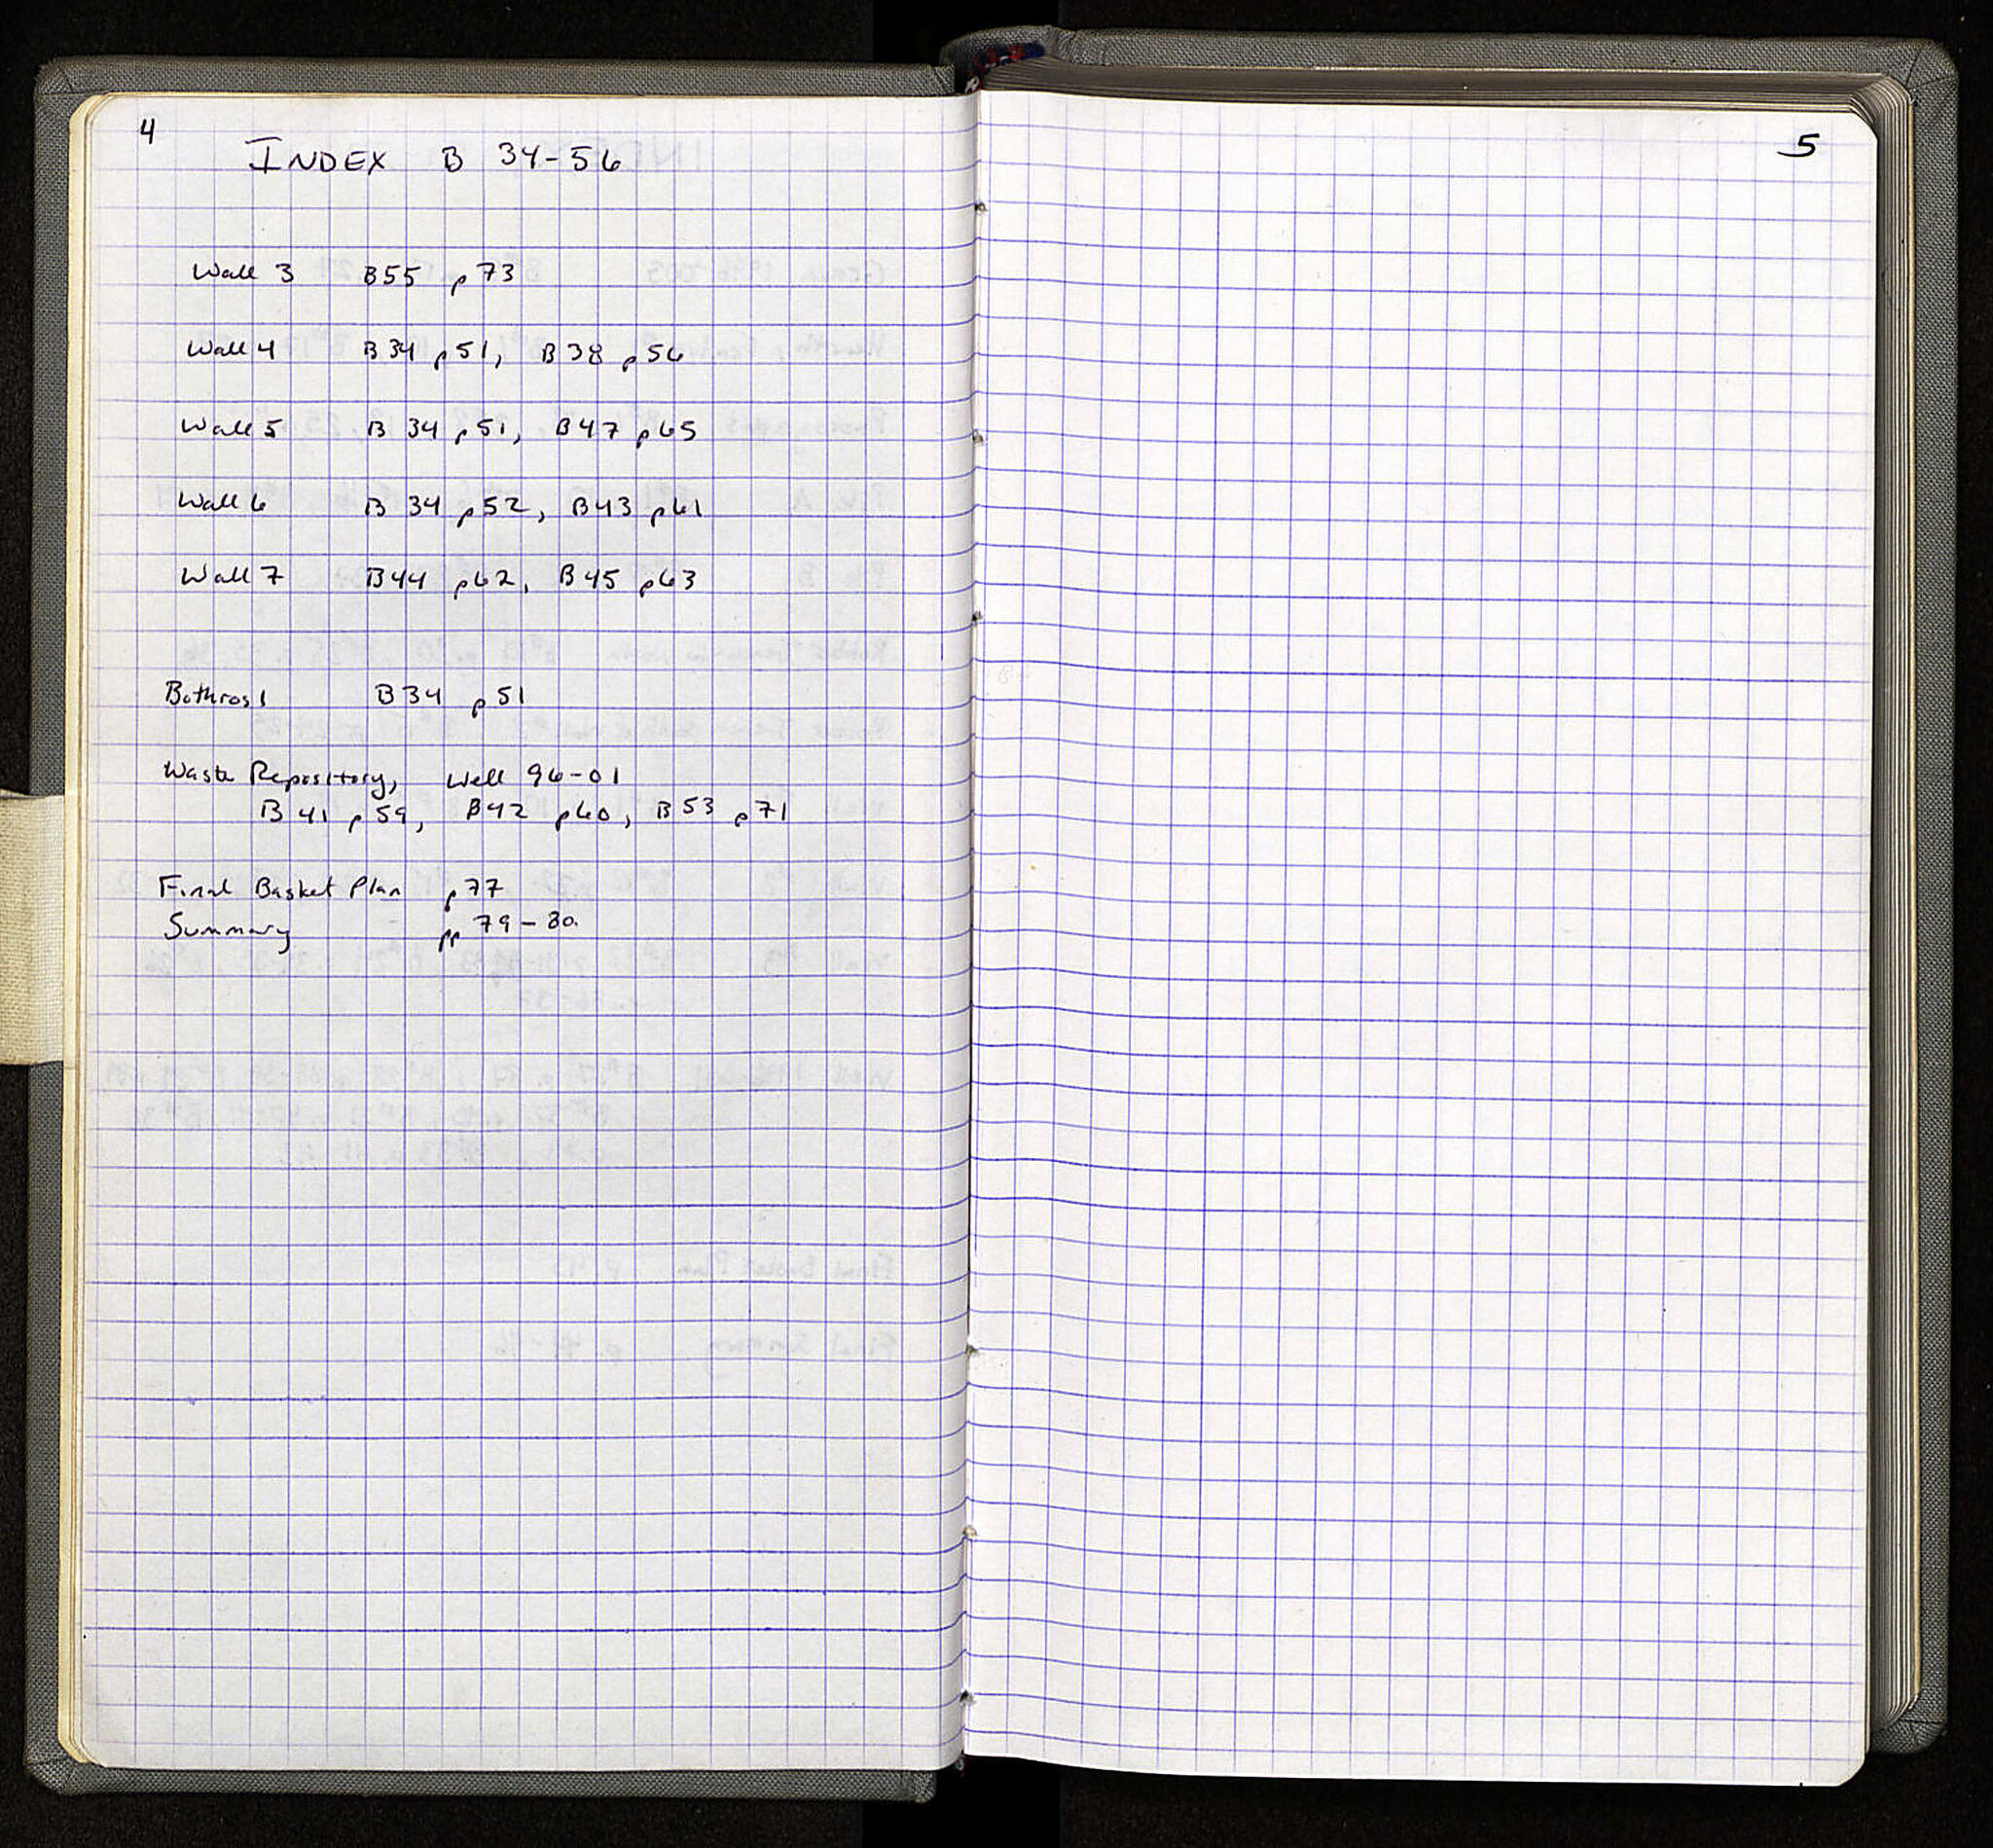 4
INDEX B 34-56
Wall 3 B55 p73
Wall 4 B34 p51, B38 p56
Wall 5 B 34 p51, B47 p65
Wall 6 B 34 p52, B43 p61
Wall 7 B44 p62, B45 p63
Bothros 1 B34 p51
Waste Repository, Well 96-01
B 41 p59, B42 p60, B53 p71
Final Basket Plan p77
Summary pp 79-80.
5